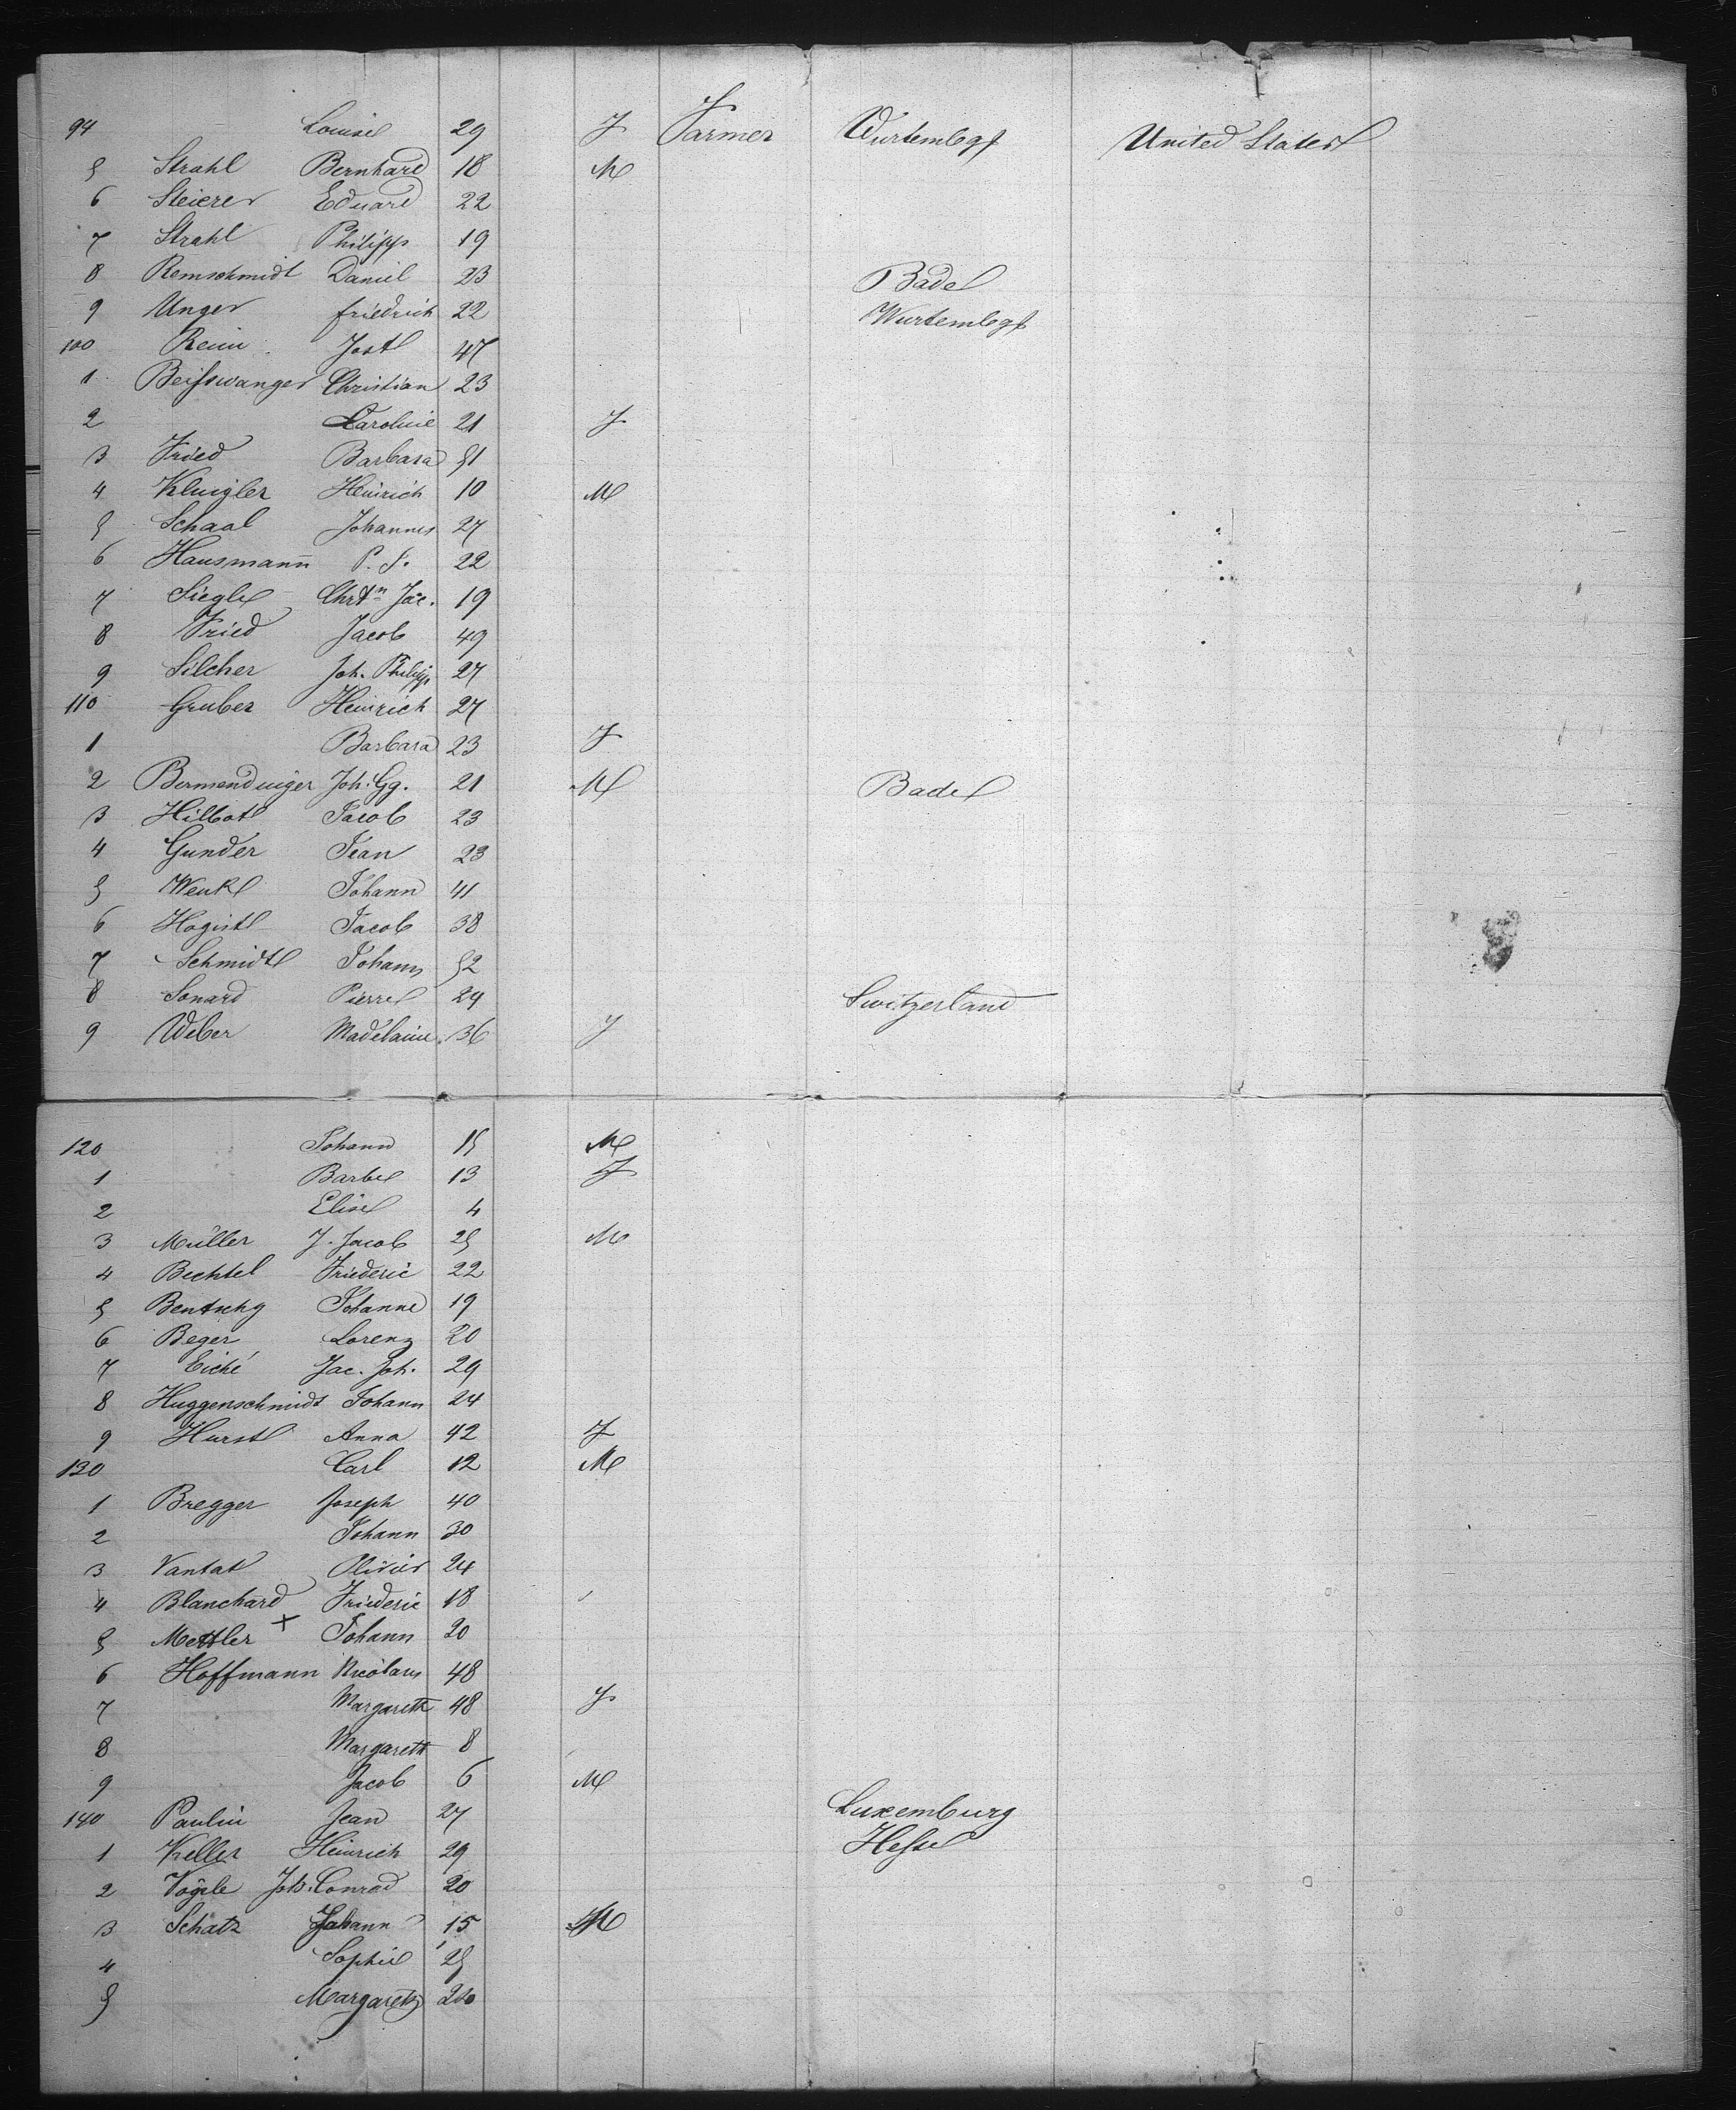 94 Louise 29 F Farmer Wurtembg United States
5 Strahl Bernhard 18 M
6 Steierer Eduard 22
7 Strahl Philipp 19
8 Remschmidt Daniel 23 Bade
9 Unger friedrich 22 Wurtembg
100 Jost 47
1 Beisswanger Christian 23
2 Caroline 21 F
3 Fried Barbara 51
4 Heinrich 10 M
5 Schaal Johannes 27
6 Hausmann P. F. 22
7 Siegle Chrtn Jac. 19
8 Fried Jacob 49
9 Silcher Joh. Philipp 27
110 Gruber Heinrich 27
1 Barbara 23 F
2 Joh. Gg. 21 M Bade
3 Jacob 23
4 Gunder Jean 23
5 Wenk Johann 41
6 Jacob 38
7 Schmidt Johann 52
8 Sonard Pierre 29 Switzerland
9 Weber Madelaine 36 F
120 Johann 15 M
1 Barbe 13 F
2 Elise 4
3 Müller J. Jacob 25 M
4 Bechtel Friederic 22
5 Johanne 19
6 Beger Lorenz 20
7 Eiché Jac. Joh. 29
8 Huggenschmidt Johann 24
9 Hurst Anna 42 F
130 Carl 12 M
1 Bregger Joseph 40
2 Johann 30
3 Vantat Olivier 24
4 Blanchard Friederic 18
5 Mettler x Johann 20
6 Hoffmann Nicolaus 48
7 Margareth 48 F
8 Margareth 8
9 Jacob 6 M
140 Paulin Jean 27 Luxemburg
1 Keller Heinrich 29 Hesse
2 Vögele Joh. Conrad 20
3 Schatz Johann 15 M
4 Sophie 25
5 Margareth